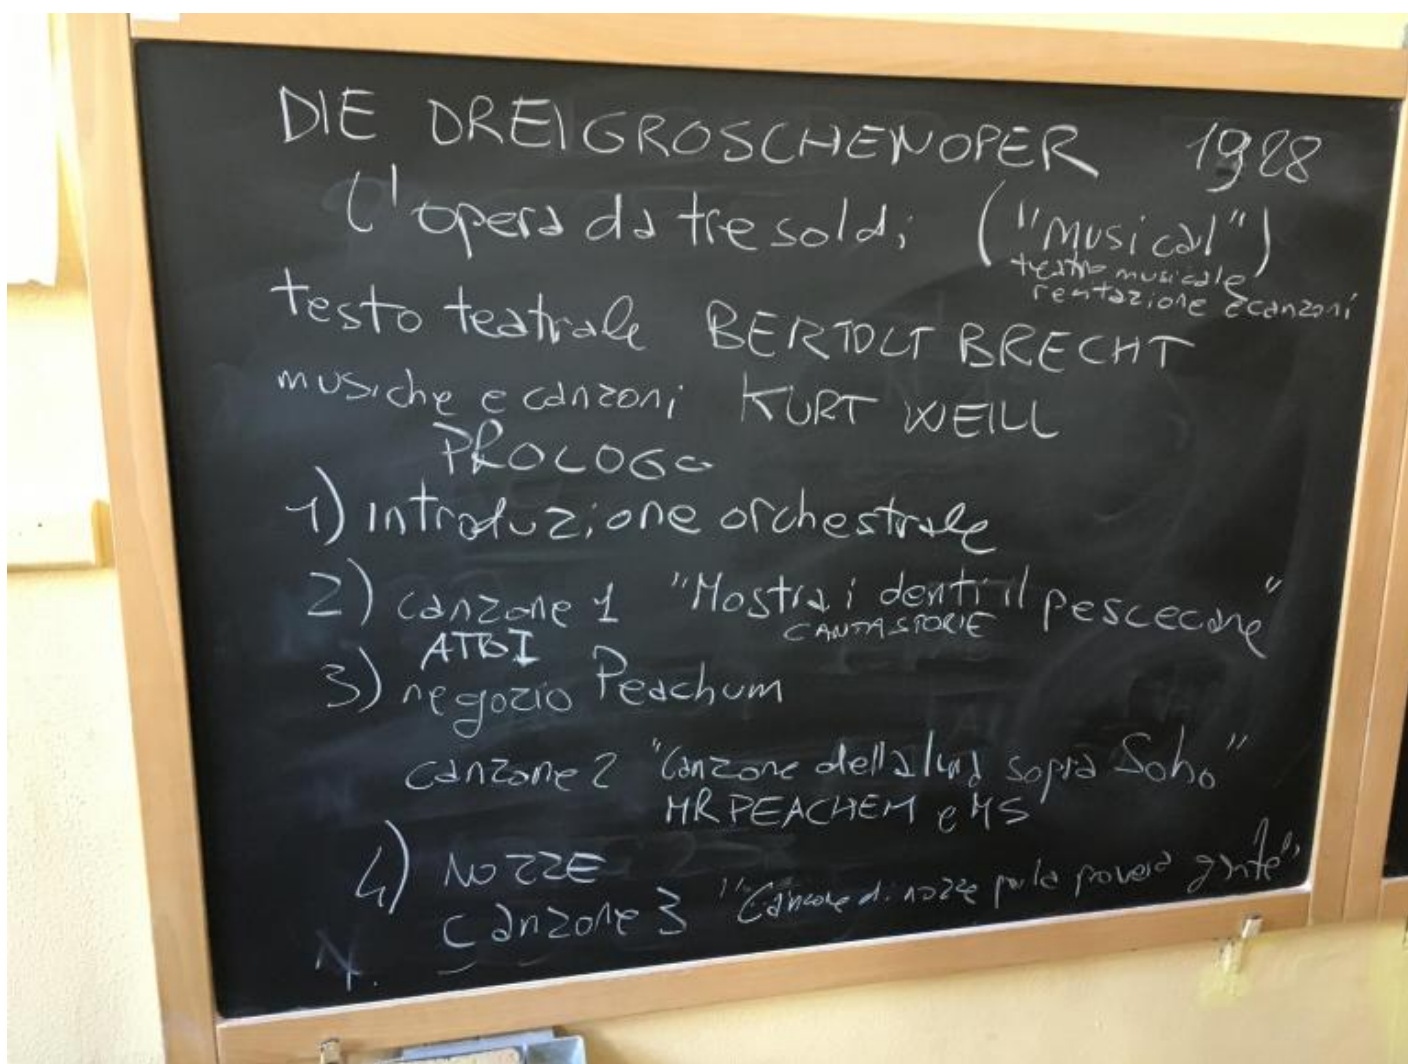 DIE DREIGROSCHENOPER 1928
L'opera da tre soldi ("musical")
teatro musicale
recitazione e canzoni
testo teatrale BERTOLT BRECHT
musiche e canzoni KURT WEILL
PROLOGO
1) introduzione orchestrale
2) canzone 1 "Mostra i denti il pescecane"
CANTASTORIE
ATTO I
3) negozio Peachum
canzone 2 "Canzone della luna sopra Soho"
MR PEACHEM e MS
4) NOZZE
canzone 3 "Canzone di nozze per la povera gente"